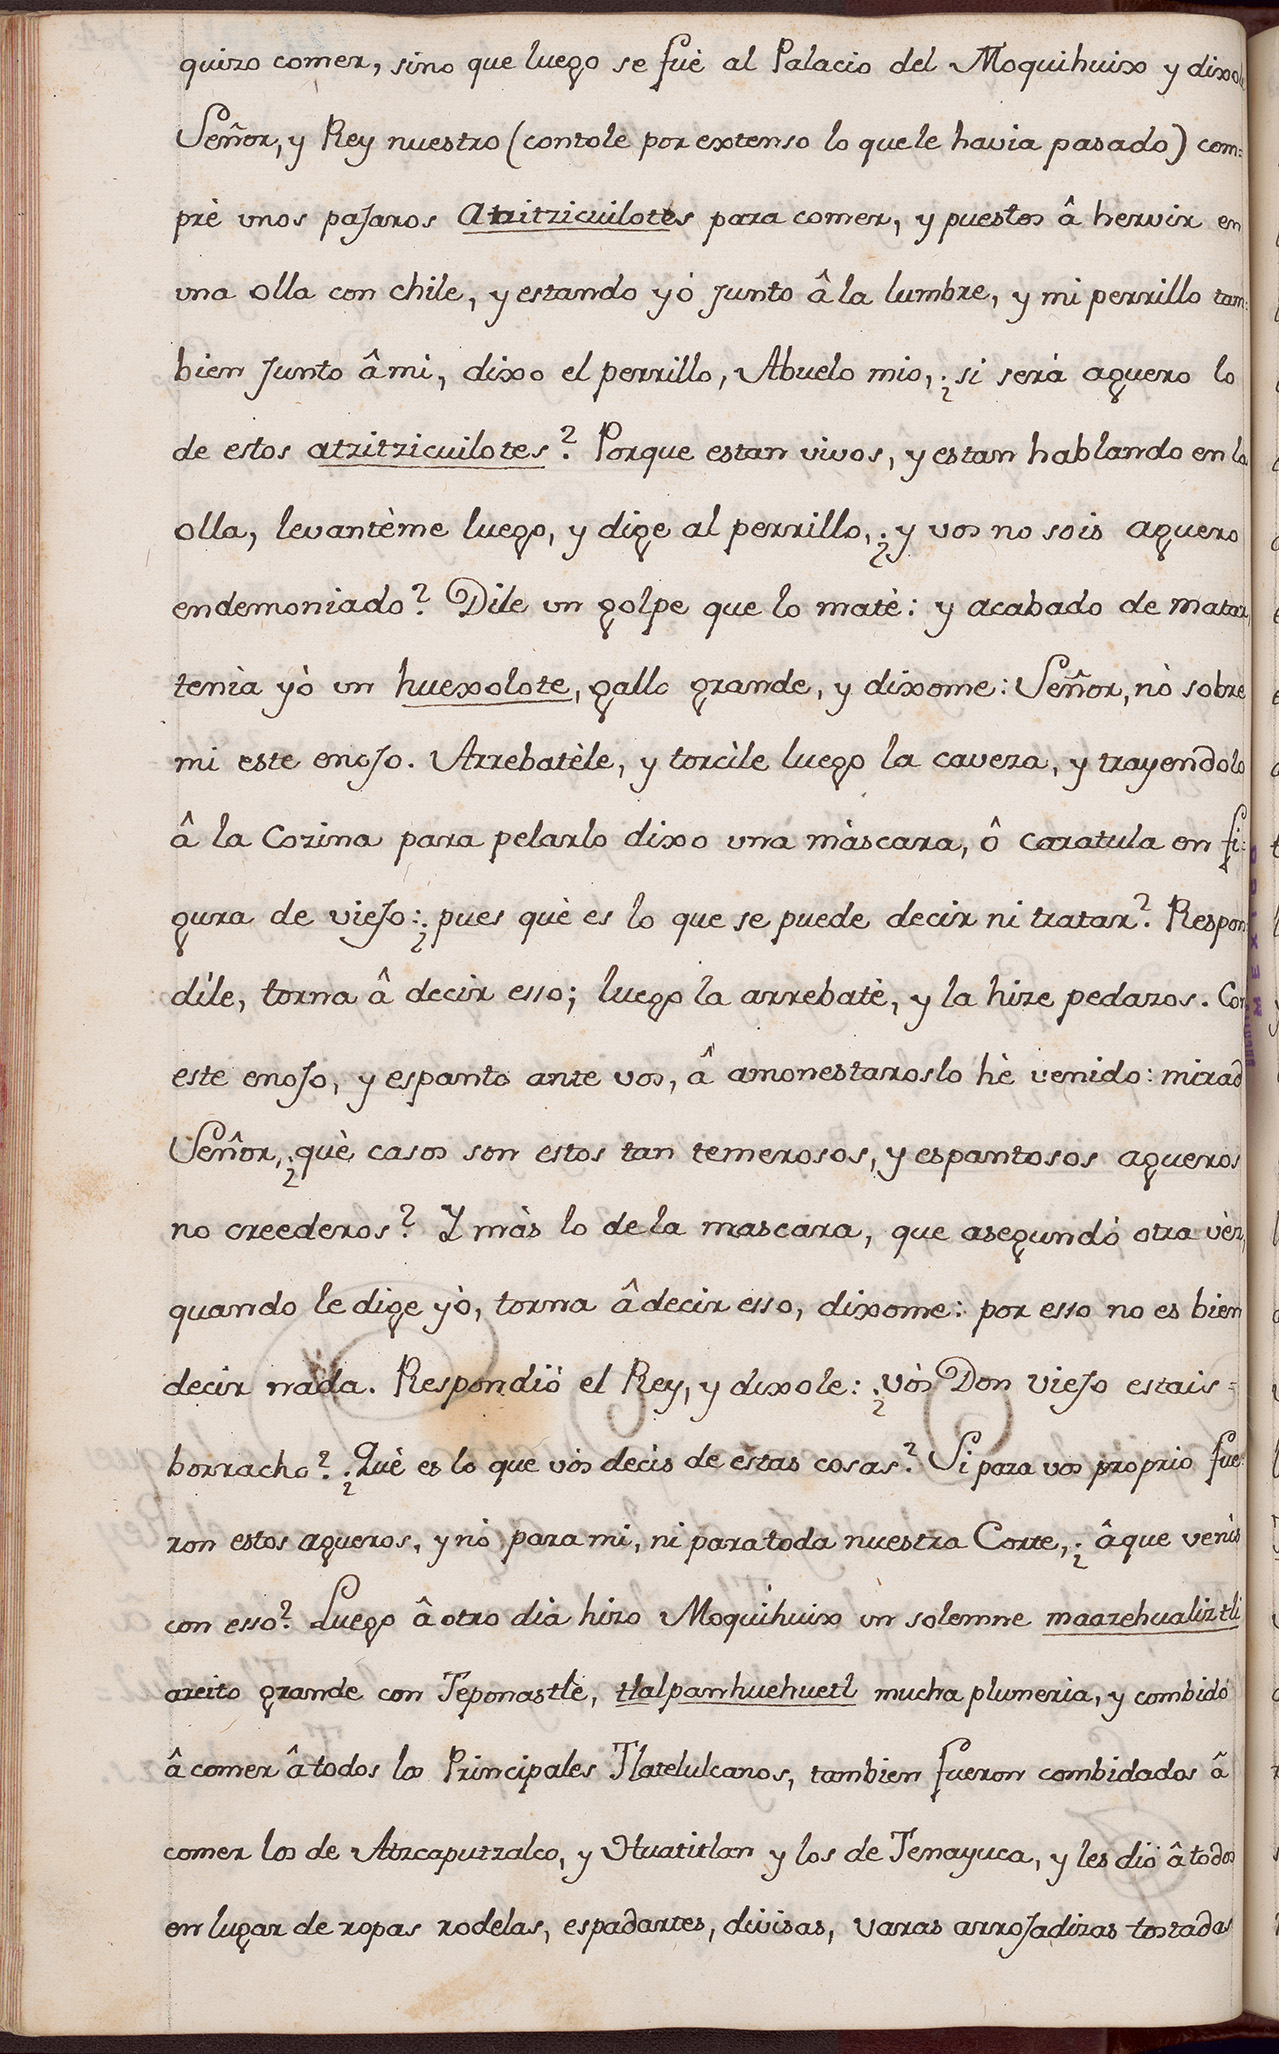 quizo comer, sino que luego se fuè al Palacio del Moquihuix y dixole
Señor, y Rey nuestro (contole por extenso lo que le havia pasado) com=
prè unos pajaros Atzitzicuilotes para comer, y puestos â hervir en
una olla con chile, y estando yò junto â la lumbre, y mi perrillo tam=
bien junto â mi, dixo el perrillo, Abuelo mio, ¿si serà aguero lo
de estos atzitzicuilotes? Porque estan vivos, y estan hablando en la
olla, levantème luego, y dige al perrillo, ¿y vos no sois aguero
endemoniado? Dile un golpe que lo matè: y acabado de matar,
tenia yò un huexolote, gallo grande, y dixome: Señor, nò sobre
mi este enojo. Arrebatèle, y torcile luego la caveza, y trayendolo
â la Cozina para pelarlo dixo una màscara, ô caratula en fi=
gura de viejo: ¿pues què es lo que se puede decir ni tratar? Respon
dile, torna â decir esso; luego la arrebatè, y la hize pedazos. Con
este enojo, y espanto ante vos, â amonestaroslo hè venido: mirad
Señor, ¿què casos son estos tan temerosos, y espantosos agueros
no creederos? Y màs lo de la mascara, que asegundó otra vèz,
quando le dige yò, torna â decir esso, dixome: por esso no es bien
decir nada. Respondiò el Rey, y dixole: ¿vòs Don viejo estais=
borracho? ¿Què es lo que vòs decìs de estas cosas? Si para vos proprio fue=
ron estos agueros, y nò para mi, ni para toda nuestra Corte, ¿â que venìs
con esso? Luego â otro dia hizo Moquihuix un solemne maazehualiztli
areito grande con Teponastle, tlalpanhuehuetl mucha plumeria, y combidò
â comer â todos los Principales Tlatelulcanos, tambien fueron combidados â
comer los de Atzcaputzalco, y Huatitlan y los de Tenayuca, y les diò â todos
en lugar de ropas rodelas, espadartes, divisas, varas arrojadizas tostadas